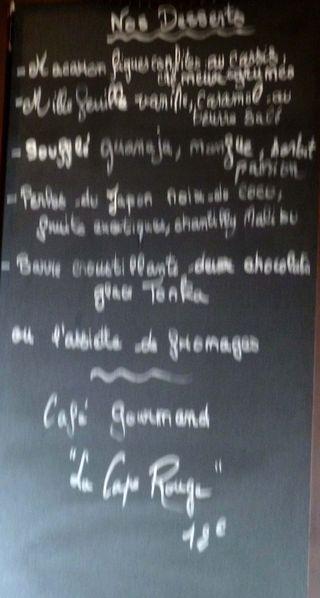 Nos Desserts
- Macaron figues confites au cassis,
crémeux agrumes
- Mille feuille vanille, caramel au
beurre salé
- Soufflé guanaja, mangue, sorbet
passion
- Perles du Japon noix de coco,
fruits exotiques, chantilly Malibu
- Barre croustillante deux chocolats
glace Tonka
ou l'assiette de fromages
Café Gourmand
"La Cape Rouge"
18€